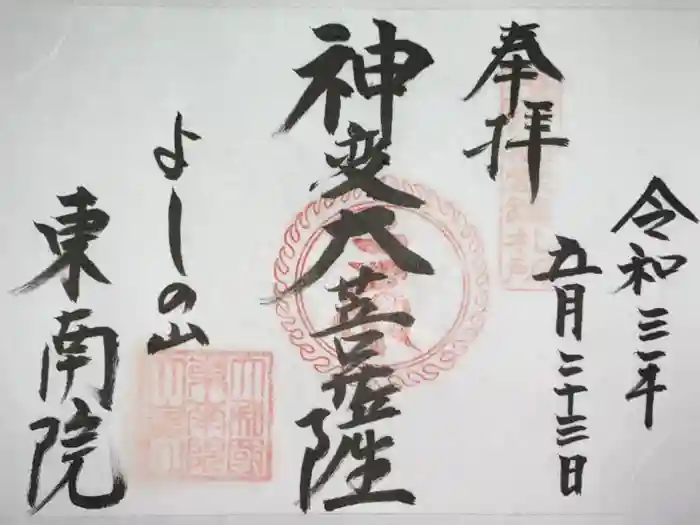 奉拝
令和三年
五月二十三日
神変大菩薩
よしの山
東南院